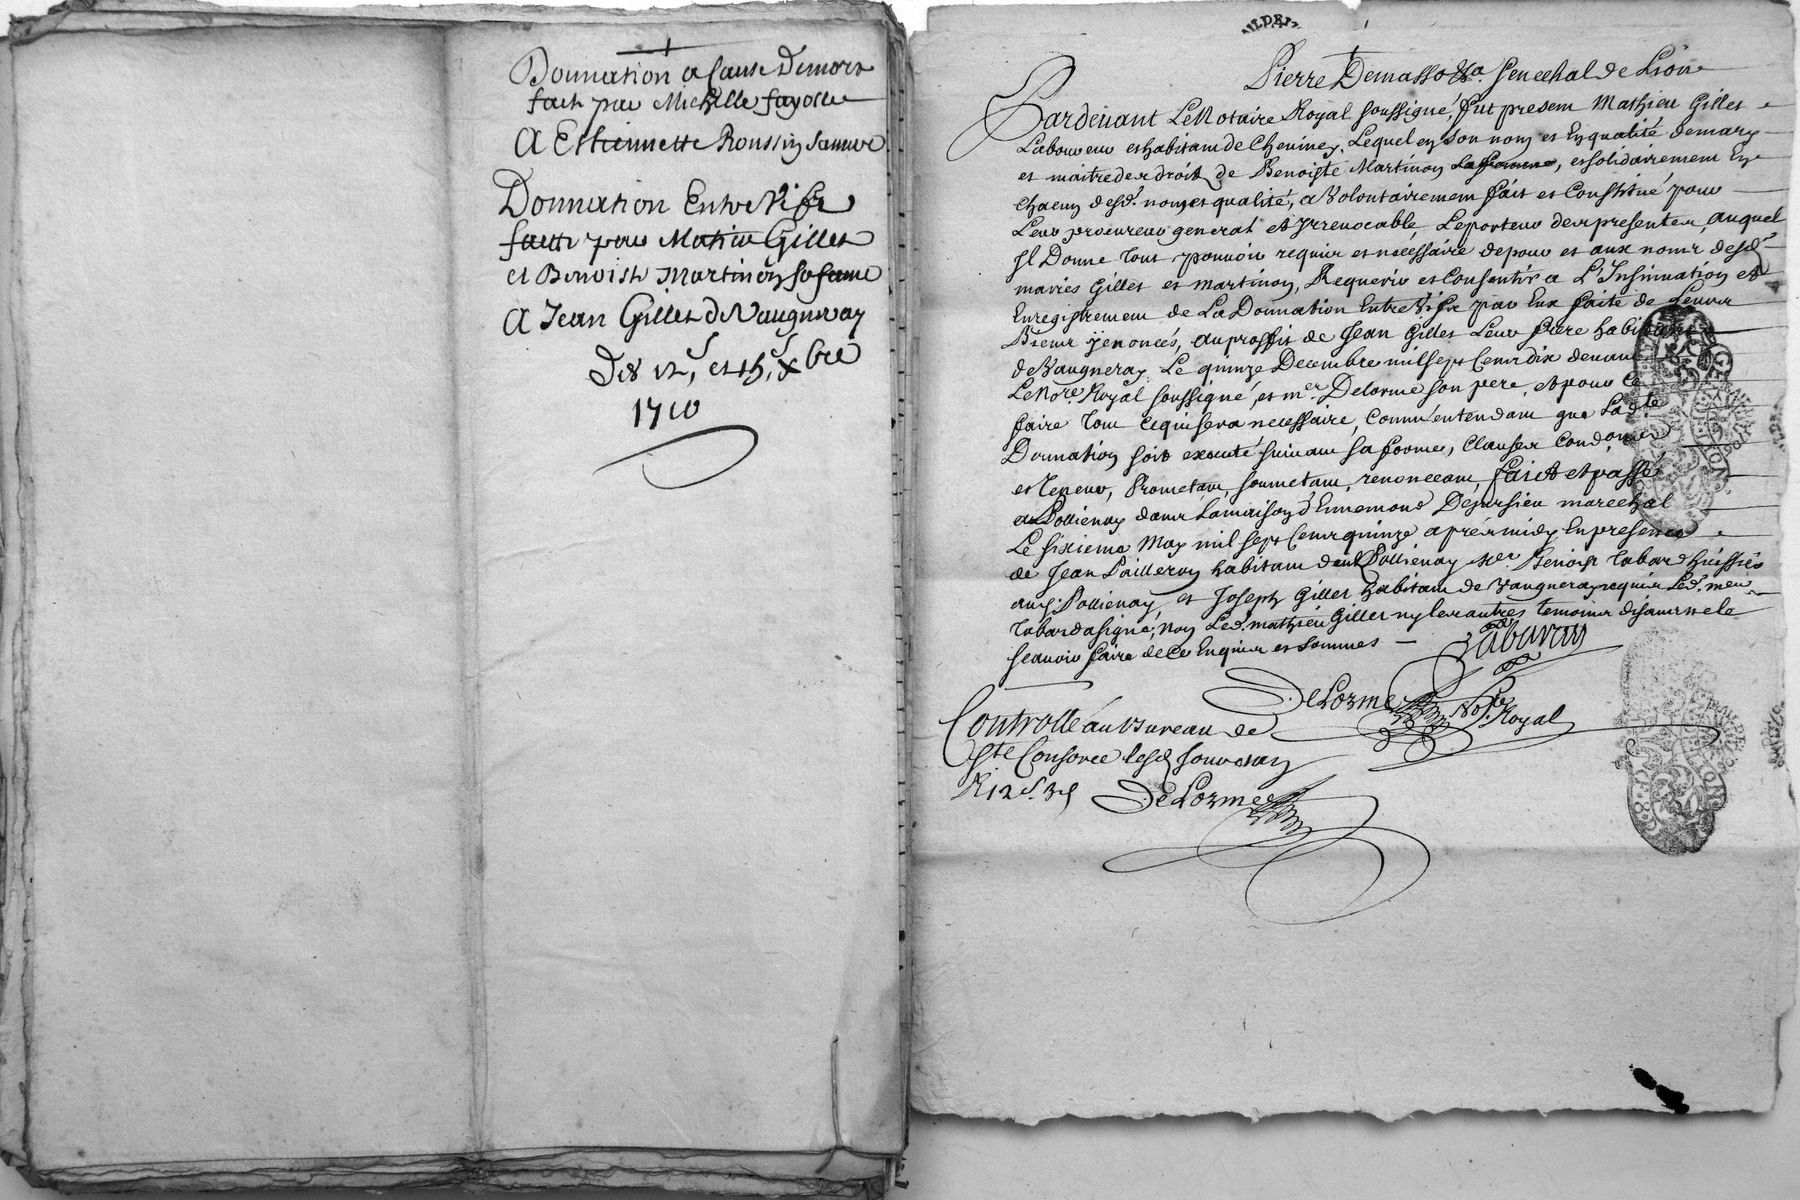 Donnation a Cause Demort
fait par Michelle fayolle
A Estiennette Roussin sa mere
Donnation Entre Vifs
faitte par Mathieu Gillet
et Benoiste Martinon sa fame
A Jean Gillet de Vaugneray
Des 12, et 15, xbre
1710
Pierre Demasso &a. Senechal de Lion
Pardevant Le Notaire Royal soussigné, fut present Mathieu Gillet
Laboureur et habitant de Cheviney, Lequel en son nom et En qualité de mary
et maitre des droits de Benoiste Martinon sa femme, et solidairement En
chacun desd. noms et qualité, a Volontairement fait et Constitué pour
Leur procureur general et Irrevocable, Le porteur des presentes, auquel
Il Donne tout pouvoir requis et nécéssaire de pour et aux noms desd.
mariés Gillet et Martinon, Requerir et Consentir a L'Insinuation et
Enregistrement de La Donnation Entre Vifs par Eux faite de Leurs
Biens y enoncés, au proffit de Jean Gillet Leur frere habitant
de Vaugneray Le quinze Decembre mil sept Cent dix devant
Le No.re Royal soussigné, et m.er Delorme son pere, et pour Ce
faire tout Ce qui sera necessaire, Comm'entendant que Lad.te
Donnation soit executé suivant sa forme, Clauses Condõns
et teneur, Prometant, soumetant, renonceant, fait et passé
a Pollienay dans La maison d'Ennemond Dejursieu marechal
Le sixieme May mil sept Cent quinze aprés midy En presence
de Jean Pailleron habitant dud. Pollienay, M.er Benoist Tabard huissier
aud. Pollienay et Joseph Gillet habitant de Vaugneray requis Led. me.
Tabard a signé, non Led. mathieu Gillet ny les autres temoins disant ne le
scavoir faire de Ce Enquis et sommés
Tabard
DeLorme No.re Royal
Controllé au Bureau de
Ste Consorce lesd. jour et an
R 12 s. 3 d
DeLorme